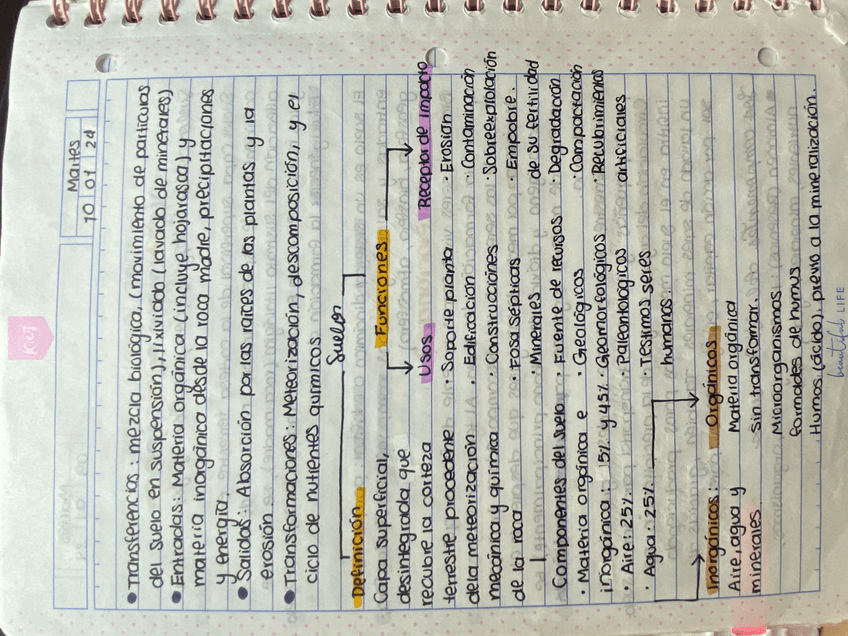 Martes
10 01 24
• Transferencias: mezcla biológica, (movimiento de partículas
del suelo en suspensión), lixiviado (lavado de minerales)
• Entradas: Materia orgánica (incluye hojarasca) y
materia inorgánica desde la roca madre, precipitaciones
y energía.
• Salidas: Absorción por las raíces de las plantas y la
erosión
• Transformaciones: Meteorización, descomposición, y el
ciclo de nutrientes químicos
Suelos
Definición
Capa superficial,
desintegrada que
recubre la corteza
terrestre procedente
de la meteorización
mecánica y química
de la roca
Funciones
Usos
· Soporte planta
· Edificación
· Construcciones
· Fosa sépticas
· Minerales
· Fuente de recursos
· Geológicos
· Geomorfológicos
· Paleontológicos
· Testimos seres
humanos
Receptor de impacto
· Erosión
· Contaminación
· Sobreexplotación
· Empobre.
de su fertilidad
· Degradación
· Compactación
· Recubrimientos
artificiales
Componentes del suelo
· Materia orgánica e
inorgánica: 5% y 45%
· Aire: 25%
· Agua: 25%
Inorgánicos:
Aire, agua y
minerales.
Orgánicos
Materia orgánica
sin transformar.
Microorganismos
formades de humus
Humos (ácido), previo a la mineralización.
beautiful LIFE